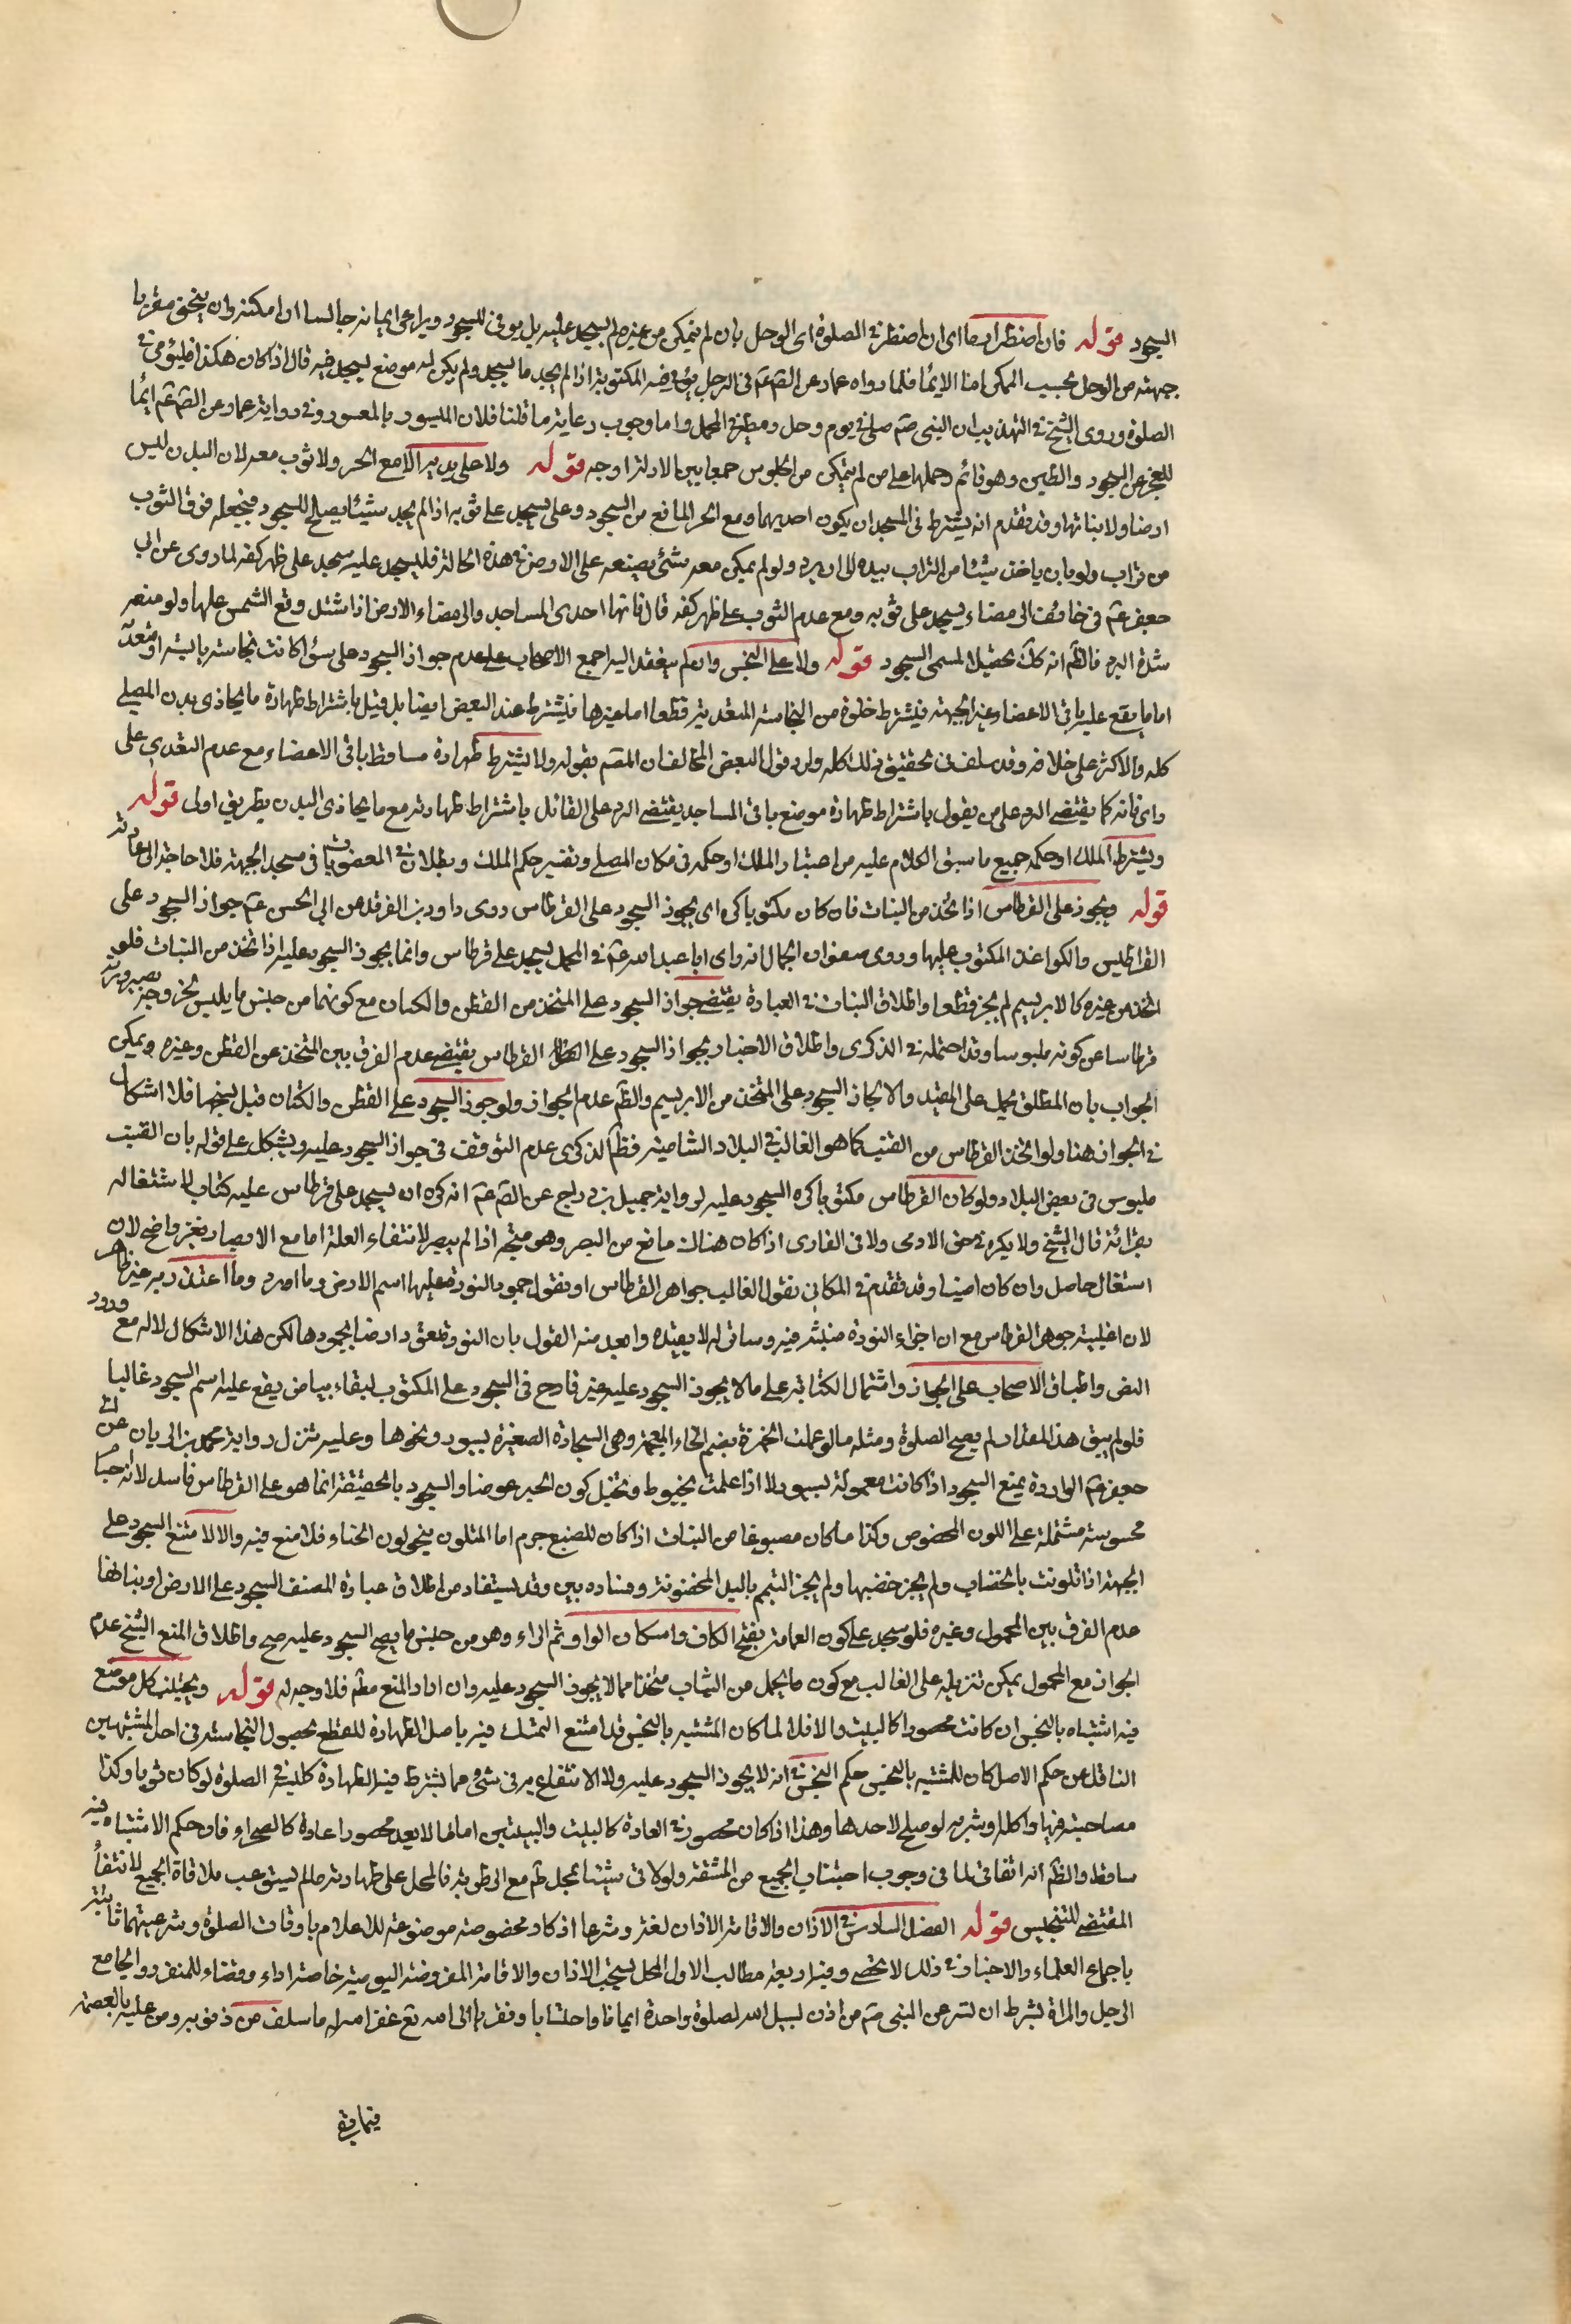 السجود قوله فان اضطر اومأ اي ان اضطر في الصلوة اي الوحل بان لم يتمكن من غيره لم يسجد عليه بل يومي للسجود ويراعي ايمائه جالسا ان امكنه وان ينحني مقربا
جبهته من الوحل بحسب الممكن اما الايماء فلما رواه عمار عن الصّ عم في الرجل يؤ في ضه المكتوبة اذا لم يجد ما يسجد ولم يكن له موضع يسجد فيه قال اذا كان هكذا فليؤمي في
الصلوة وروى الشيخ في التهذيب ان النبي صم صلى في يوم وحل ومطر في المحمل واما وجوب رعاية ما قلنا فلان الميسور بالمعسور وفي رواية عمار عن الصّ عم ايماء
للعجز عن السجود والطين وهو قائم وحملها على من لم يتمكن من الجلوس جمعا بين الادلة اوجه قوله ولا على يديه الا مع الحر ولا ثوب معه لان البدن ليس
ارضا ولا بناتها وقد تقدم انه يشترط في المسجد ان يكون احديهما ومع الحر المانع من السجود وعلى يسجد على ثوبه اذا لم يجد شيئا يصلح للسجود فيجعله فوق الثوب
من تراب ولو بان ياخذ شيئا من التراب بيده الى ان يبرد ولو لم يمكن معه شئ يصنعه على الارض في هذه الحالة فليسجد عليه سجد على ظهر كفه لما روى عن ابي
جعفر عم في خائف الرمضاء يسجد على ثوبه ومع عدم الثوب على ظهر كفه قال فانها احدى المساجد والرمضاء الارض اذا اشتد وقع الشمس عليها ولو منعه
شدة البرد فالظّم انه كك تحصيلا لمسمى السجود قوله ولا على النجس وان لم يتعد اليه اجمع الاصحاب على عدم جواز السجود على شئ اكانت نجاسته يابسة او متعدّ
اما ما يقع عليه باقي الاعضاء غير الجبهة فيشترط خلوة من النجاسة المتعدية قطعا اما غيرها فيشترط عند البعض ايضا بل قيل باشتراط طهارة ما يحاذي بدن المصلي
كله والاكثر على خلافه وقد سلف تحقيق ذلك كله وارد قول البعض المخالف ان المصم بقوله ولا يشترط طهارة مساقط باقي الاعضاء مع عدم التعدي على
راى فانه كما يقتضي الرد على من يقول باشتراط طهارة موضع باقي المساجد يقتضي الرد على القائل باشتراط طهارته مع ما يحاذي البدن بطريق اولى قوله
ويشترط الملك او حكمه جميع ما سبق الكلام عليه من اعتبار الملك او حكمه في مكان المصلي وتفسير حكم الملك وبطلان في المغصوب يات في مسجد الجبهة فلا حاجة الى اعادته
قوله ويجوز على القرطاس اذا اتخذ من النبات فان كان مكتوبا كره اي يجوز السجود على القرطاس روى داود بن الفرقد عن ابي الحسن عم جواز السجود على
القراطيس والكواغذ المكتوب عليها وروى صفوان الجمال انه راى ابا عبد الله عم في المحمل يسجد على قرطاس وانما يجوز السجود عليه اذا اتخذ من النبات فلو
اتخذ من غيره كالابريسم لم يجز قطعا واطلاق النبات في العبارة يقتضي جواز السجود على المتخذ من القطن والكتان مع كونهما من جنس ما يلبس لخروجه بصيرورته
قرطاسا عن كونه ملبوسا وقد احتمله في الذكرى واطلاق الاخبار بجواز السجود على القرطاس يقتضي عدم الفرق بين المتخذ من القطن وغيره ويمكن
الجواب بان المطلق يحمل على المقيد والا لجاز السجود على المتخذ من الابريسم والظّم عدم الجواز ولو جوز السجود على القطن والكتان قبل نسجهما فلا اشكال
في الجواز هنا ولو اتخذ القرطاس من القنب كما هو الغالب في البلاد الشامية فظّم الذكرى عدم التوقف في جواز السجود عليه ويشكل على قوله بان القنب
ملبوس في بعض البلاد ولو كان القرطاس مكتوبا كره السجود عليه لرواية جميل بن دراج عن الصّ عم انه كره ان يسجد على قرطاس عليه كتاب لاشتغاله
بقرائة قال الشيخ ولا يكره في حق الامي ولا في القاري اذا كان هناك مانع من البصر وهو متجه اذا لم يبصر لانتفاء العلة اما مع الابصار فغير واضح لان
اشتغال حاصل وان كان اميا وقد تقدم في المكان بقول الغالب جواهر القرطاس او نقول جمود النورة عليها اسم الارض وما اورد وما اعتذر به غير ظاهر
لان اغلبية جوهر القرطاس مع ان اجزاء النورة منبثه فيه وساتر له لا يفيد وابعد منه القول بان النورة تعود ارضا بجمودها لكن هذا الاشكال لا له مع ورود
النص واطباق الاصحاب على الجواز واشتمال الكتابة على ما لا يجوز السجود عليه غير قادح في السجود على المكتوب لبقاء بياض يقع عليه اسم السجود غالبا
فلو لم يبق هذا المقدار لم يصح الصلوة ومثله ما لو عملت الخمرة بضم الخاء المعجمة وهي السجادة الصغيرة بسيور ونحوها وعليه تنزل رواية محمد بن الريان عن ابي
جعفر عم الواردة بمنع السجود اذا كانت معمولة بسيور لا اذا عملت بخيوط وتخيل كون الحبر عرضا والسجود بالحقيقة انما هو على القرطاس فاسد لانه اجسام
محسوسة مشتملة على اللون المخصوص وكذا ما كان مصبوغا من النبات اذا كان للصبغ جرم اما المتلون بنحو لون الحناء فلا منع فيه والا لامتنع السجود على
الجبهة اذا تلونت بالخضاب ولم يجز خضبها ولم يجز التيمم باليد المخضوبة وفساده بين وقد يستفاد من اطلاق عبارة المصنف السجود على الارض او نباتها
عدم الفرق بين المحمول وغيره فلو سجد على كور العمامة بفتح الكاف واسكان الواو ثم الراء وهو من جنس ما يصح السجود عليه صح واطلاق المنع الشيخ عدم
الجواز مع المحمول يمكن تنزيله على الغالب مع كون ما يحمل من الثياب متخذا مما لا يجوز السجود عليه وان اراد المنع مطّم فلا وجه له قوله ويجتنب كل موضع
فيه اشتباه بالنجس ان كانت محصورا كالبيت والا فلا لما كان المشتبه بالنجس قد امتنع التمسك فيه باصل الطهارة للقطع بحصول النجاسة في احد المشتبهين
الناقل عن حكم الاصل كان للمشتبه بالنجس حكم النجس في انه لا يجوز السجود عليه ولا الانتفاع به في شئ مما يشترط فيه الطهارة كلبسه في الصلوة لو كان ثوبا وكذا
مصاحبته فيها واكله وشربه لو صلح لاحدها وهذا اذا كان محصورا في العادة كالبيت والبيتين اما ما لا يعد محصورا عادة كالصحراء فان حكم الاشتباه فيه
ساقط والظّم انه اتفاقي لما في وجوب اجتناب الجميع من المشقة ولو لاقى شيئا بمحل ثم مع الرطوبة فالمحل على طهارته ما لم يستوعب ملاقاة الجميع لانتفاء
المقتضي للتنجيس قوله الفصل السادس في الاذان والاقامة الاذان لغة وشرعا اذكار مخصوصة موضوعة للاعلام باوقات الصلوة وشرعيتهما ثابتة
باجماع العلماء والاخبار في ذلك لا تحصى وفيه اربعة مطالب الاول المحل يستحب الاذان والاقامة المفروضة اليومية خاصة اداء وقضاء للمنفرد والجامع
الرجل والمراة بشرط ان تسر عن النبي صم من اذن لسبيل الله لصلوة واحدة ايمانا واحتسابا وتقربا الى الله تع غفر الله له ما سلف من ذنوبه ومن عليه بالعصمة
فيما بقي